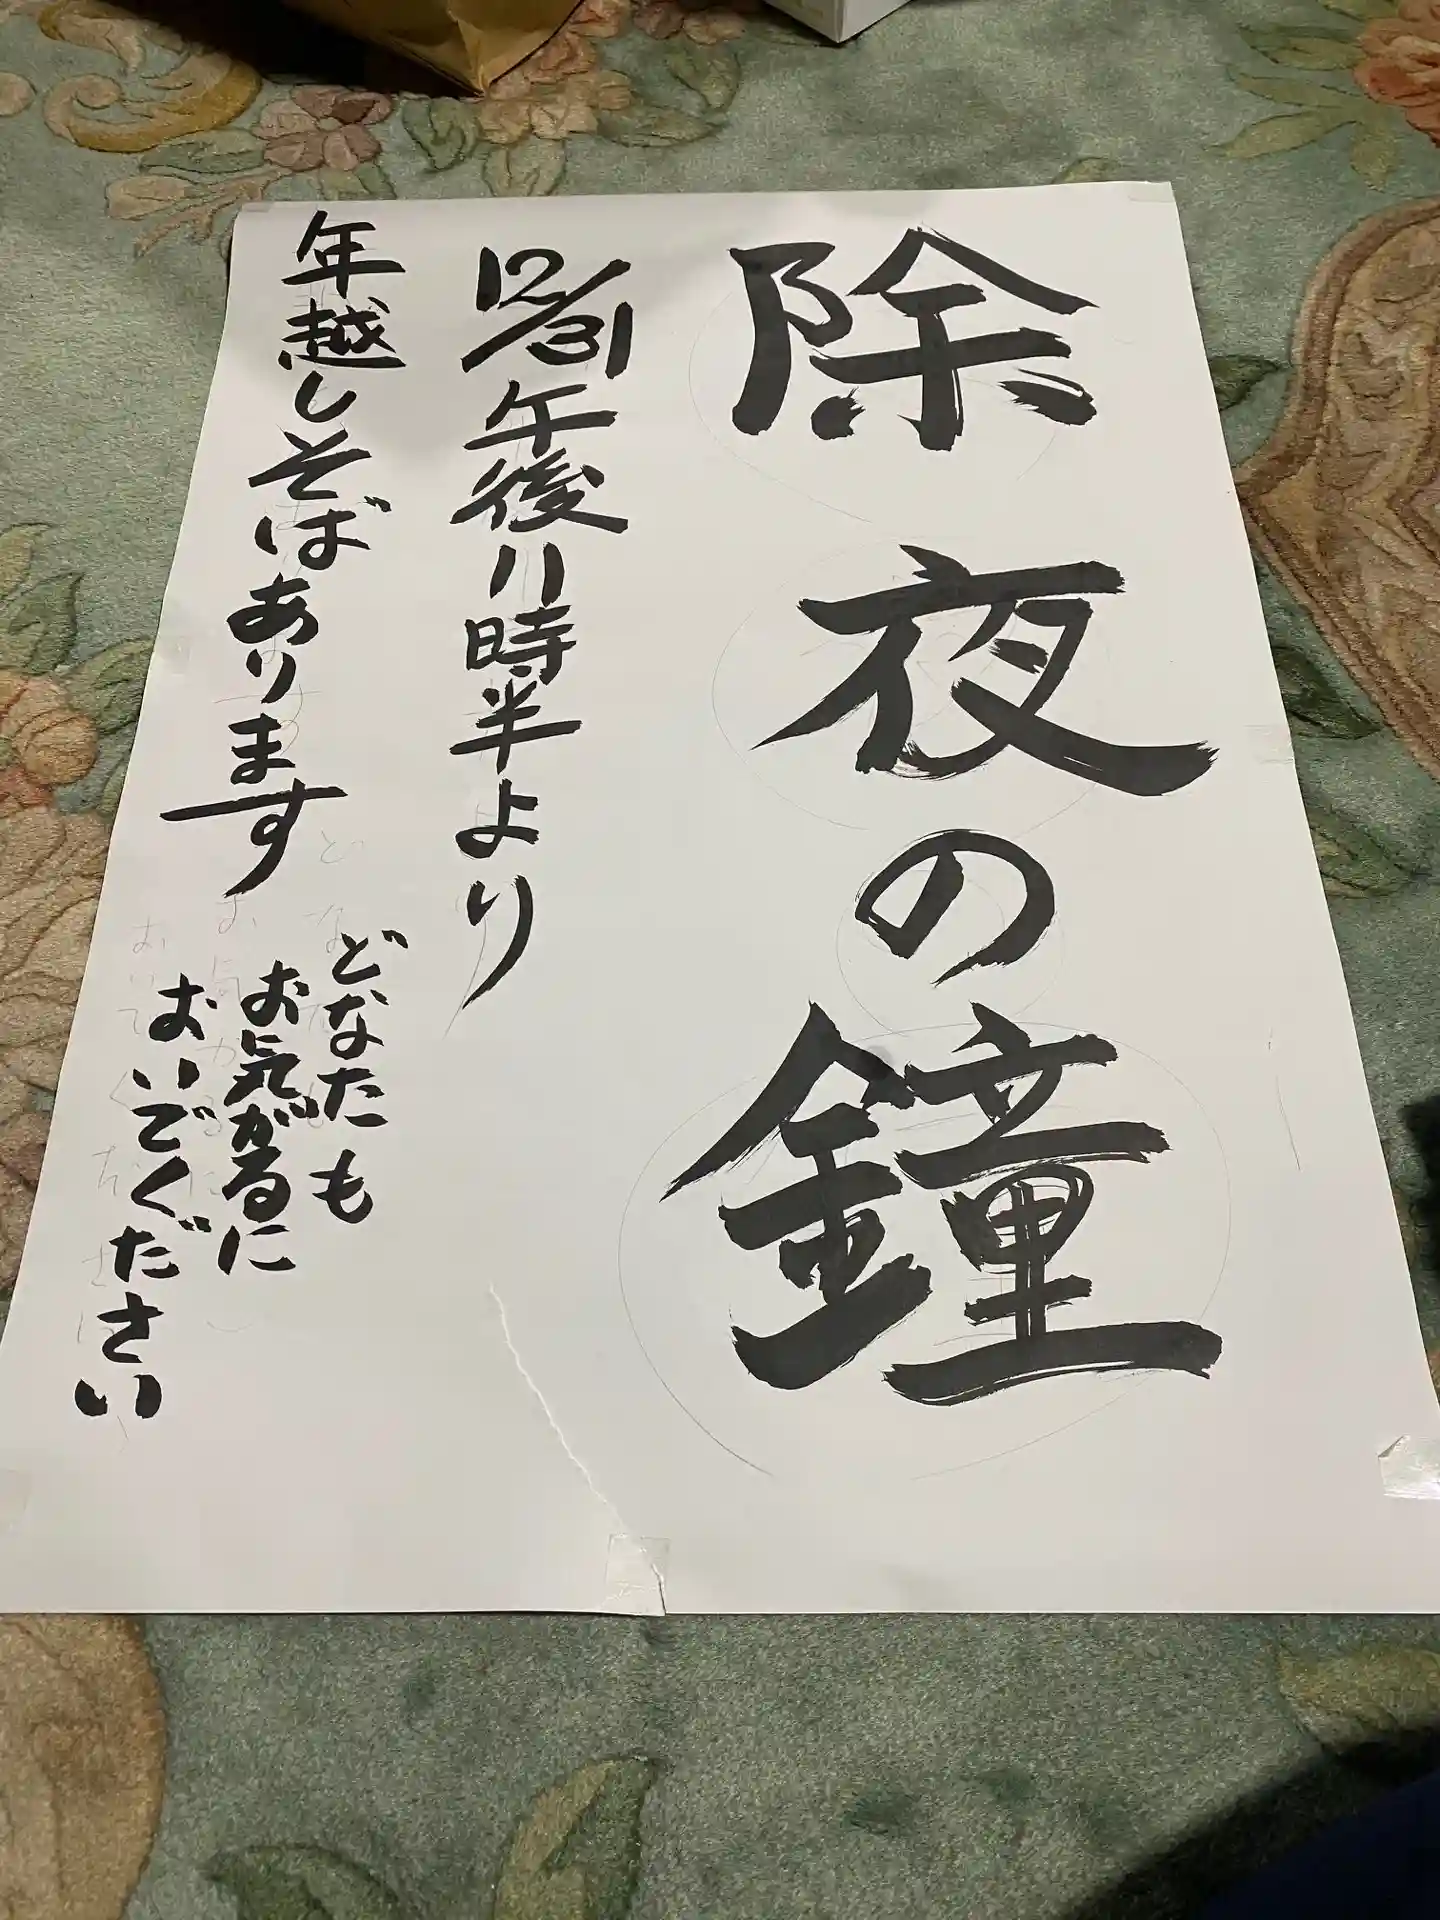 除夜の鐘
12/31午後11時半より
年越しそばあります
どなたも
お気がるに
おいでください